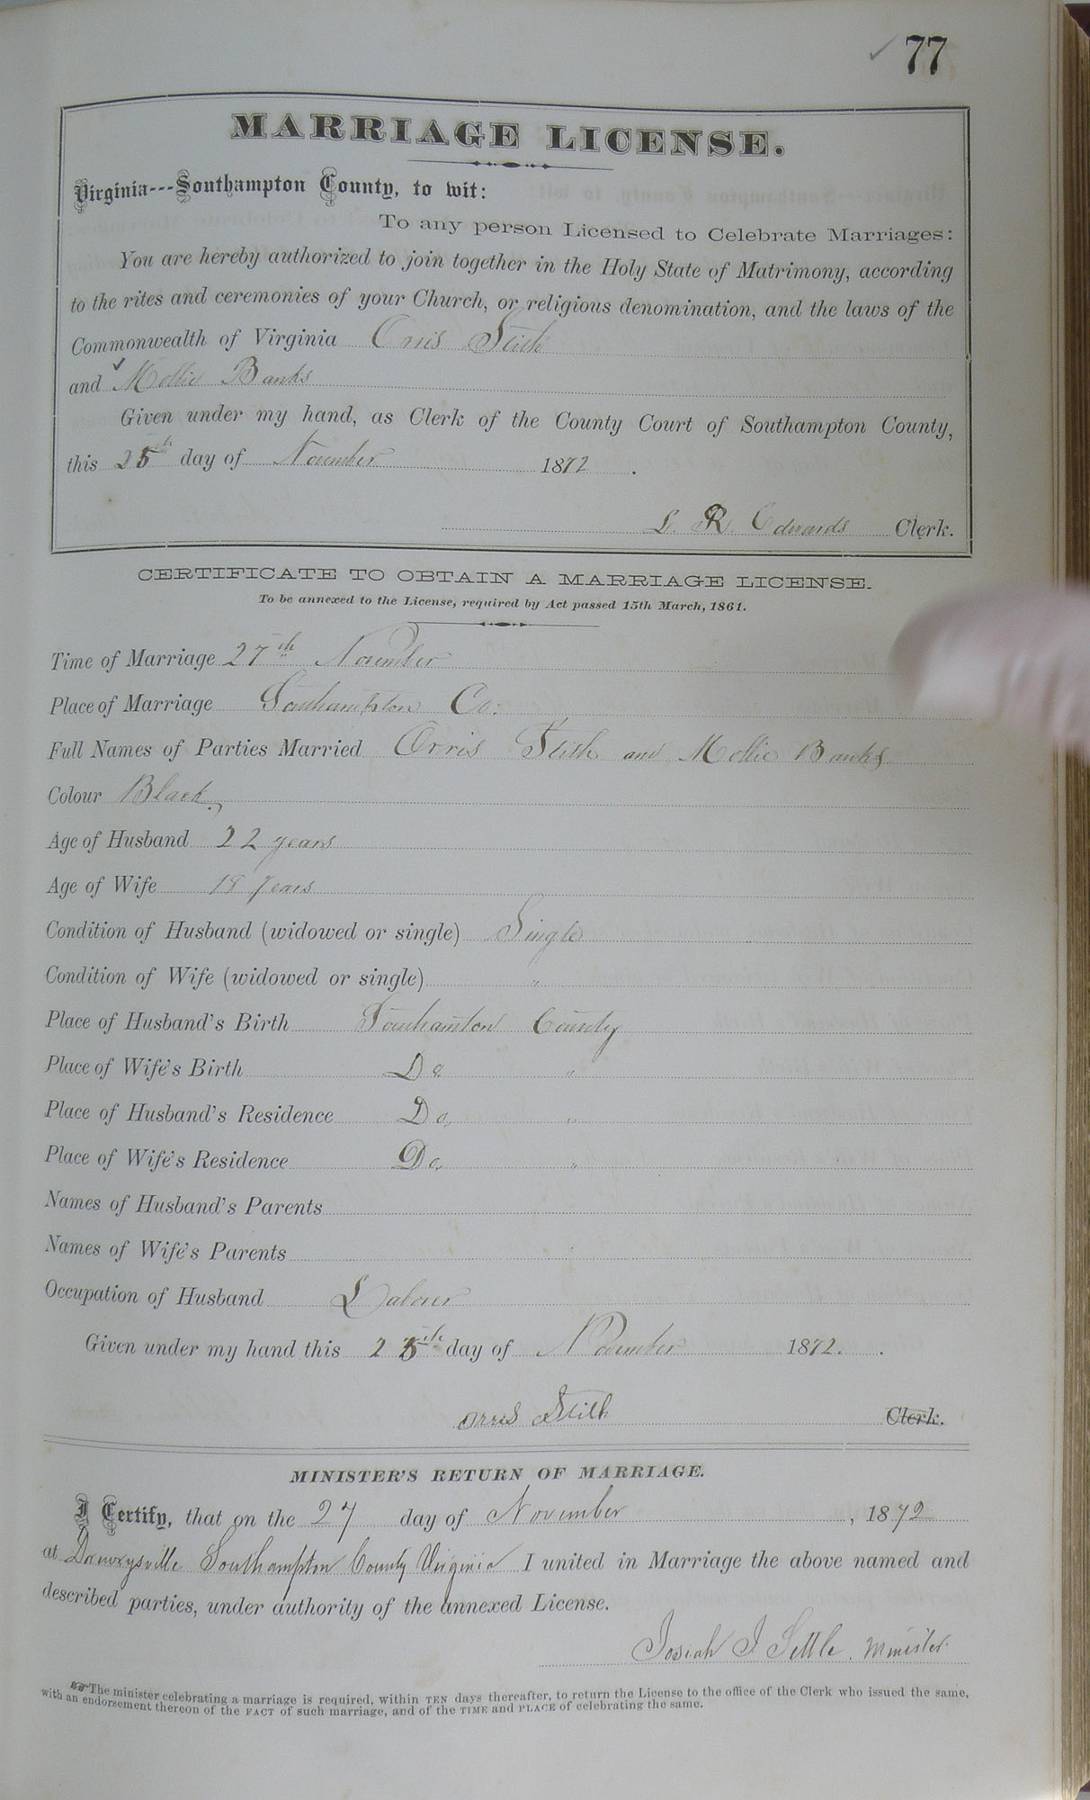 ✓ 77
MARRIAGE LICENSE.
Virginia---Southampton County, to wit:
To any person Licensed to Celebrate Marriages:
You are hereby authorized to join together in the Holy State of Matrimony, according
to the rites and ceremonies of your Church, or religious denomination, and the laws of the
Commonwealth of Virginia Orris Stith
and ✓ Mollie Banks
Given under my hand, as Clerk of the County Court of Southampton County,
this 25th day of November 1872.
L. R. Edwards Clerk.
CERTIFICATE TO OBTAIN A MARRIAGE LICENSE.
To be annexed to the License, required by Act passed 15th March, 1861.
Time of Marriage 27th November
Place of Marriage Southampton Co:
Full Names of Parties Married Orris Stith and Mollie Banks
Colour Black,
Age of Husband 22 years
Age of Wife 18 years
Condition of Husband (widowed or single) Single
Condition of Wife (widowed or single) "
Place of Husband's Birth Southamton County
Place of Wife's Birth Do "
Place of Husband's Residence Do, "
Place of Wife's Residence Do, "
Names of Husband's Parents
Names of Wife's Parents
Occupation of Husband Laborer
Given under my hand this 25th day of November 1872.
Orris Stith Clerk.
MINISTER'S RETURN OF MARRIAGE.
I Certify, that on the 27 day of November, 1872
at Drewrysville Southampton County Virginia I united in Marriage the above named and
described parties, under authority of the annexed License.
Josiah J Settle, Minister
The minister celebrating a marriage is required, within TEN days thereafter, to return the License to the office of the Clerk who issued the same,
with an endorsement thereon of the FACT of such marriage, and of the TIME and PLACE of celebrating the same.